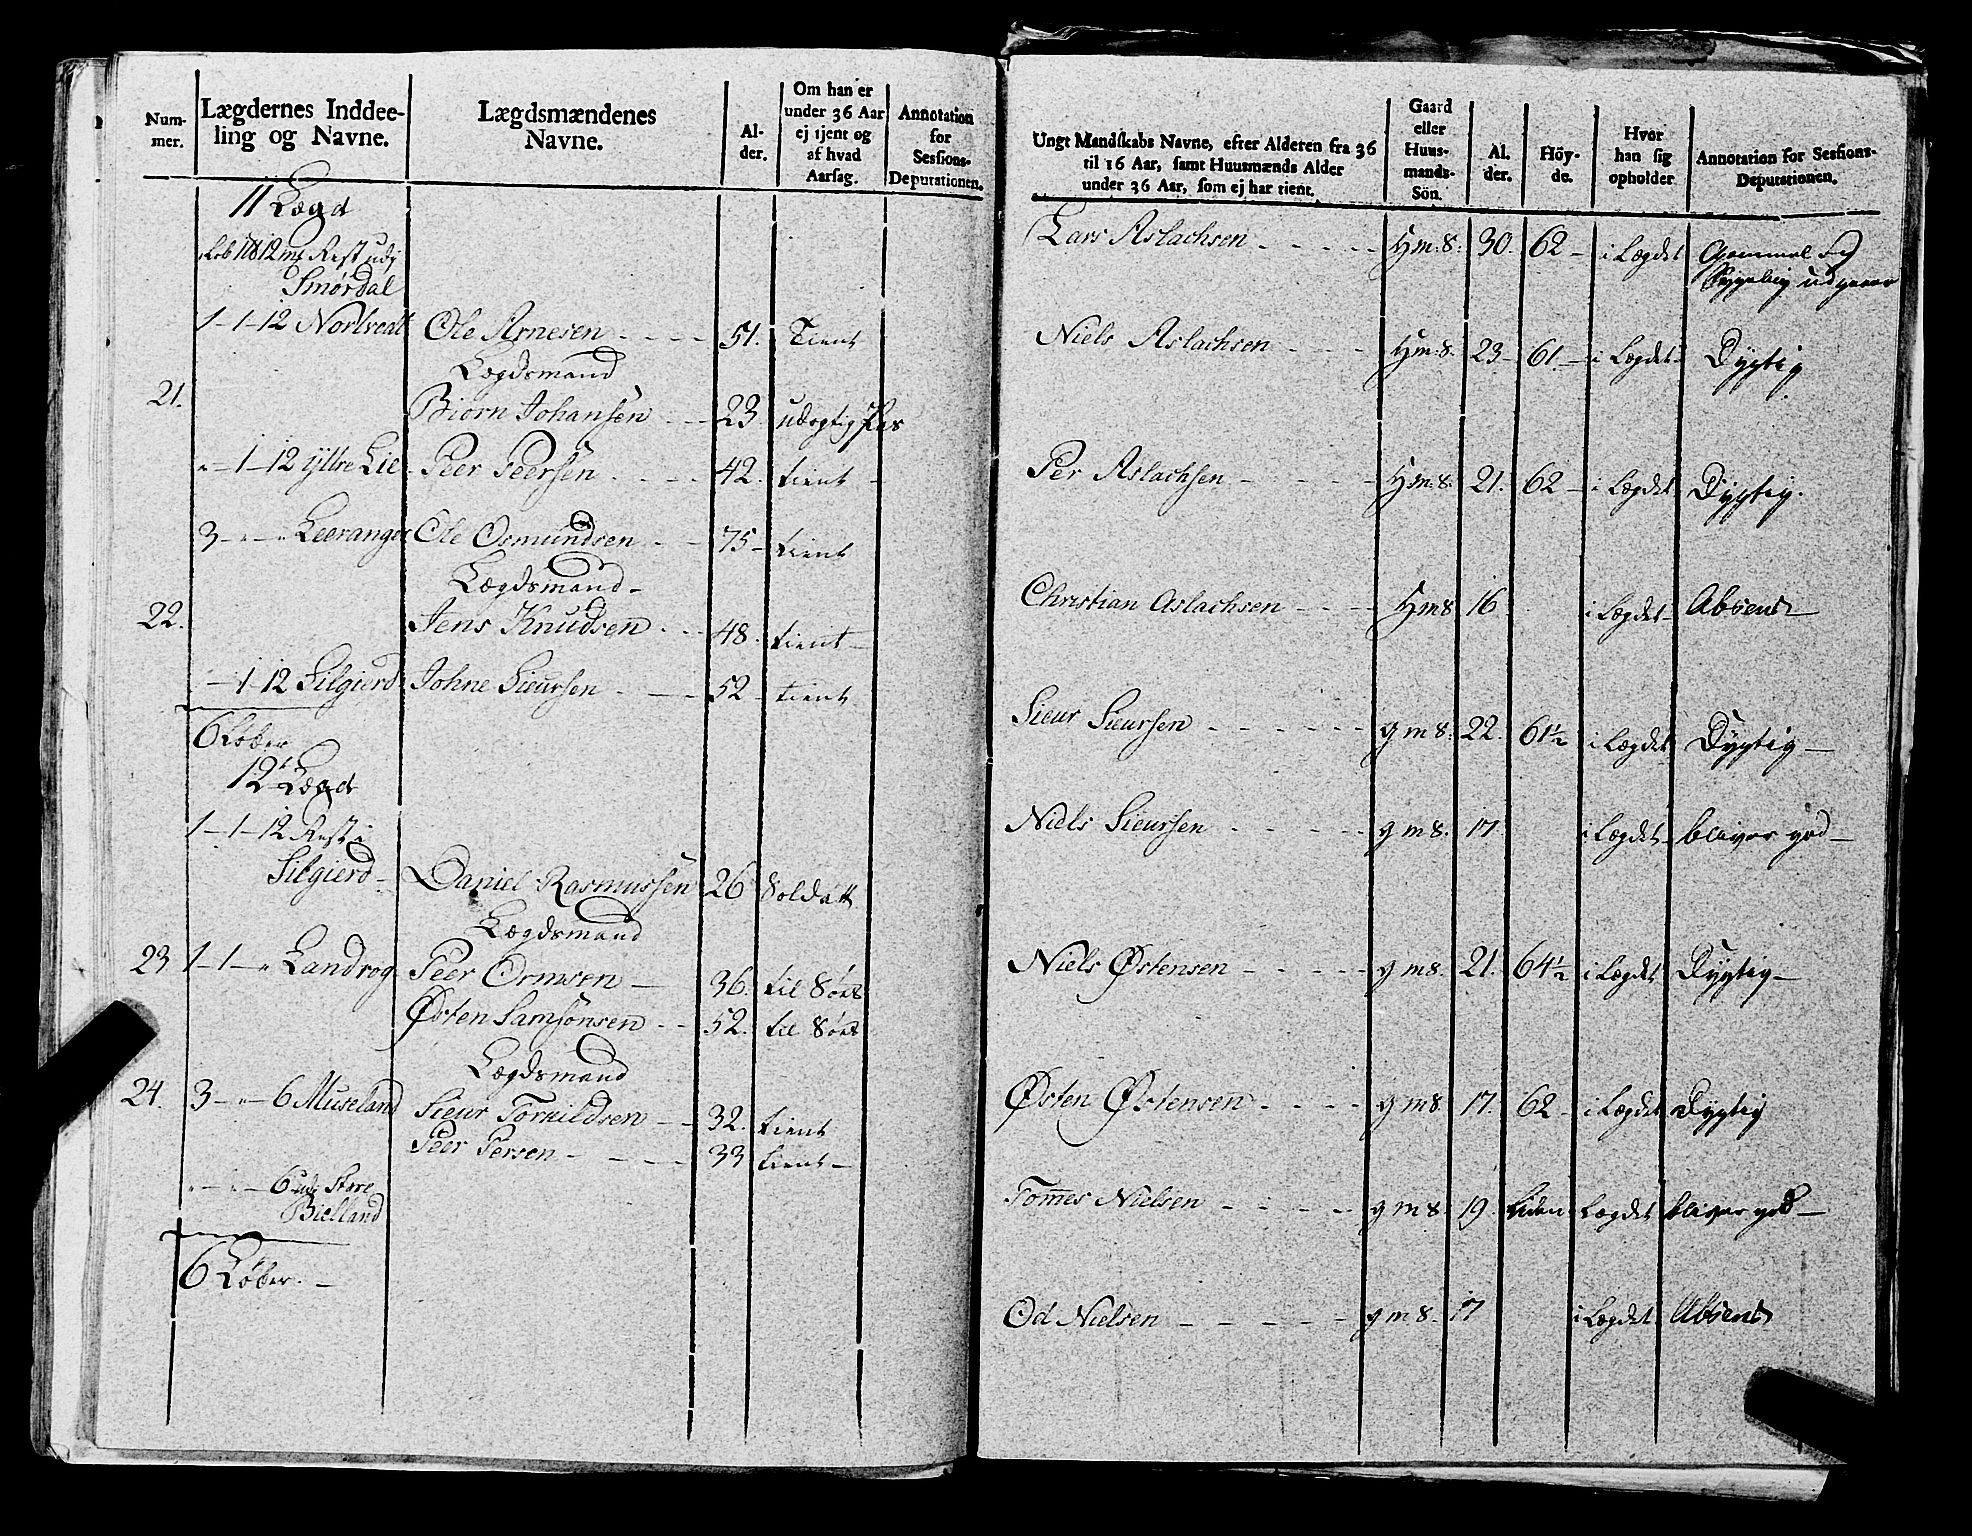 Num-
mer.
Lægdernes Inddee-
ling og Navne.
Lægdsmændenes
Navne.
Al-
der.
Om han er
under 36 Aar
ej tjent og
af hvad
Aarsag.
Annotation
for
Sessions-
Deputationen.
11 Lægd
Løb 1812 Rest udj
Smørdal
1-1-12 Nortveat Ole Arnesen 51. Tient
Lægdsmand
21.
Biørn Johansen 23 udøgtig
1-12 ÿttre Lie Peer Peersen 42. tient
3 Leeranger Ole Osmundsen 75 tient
Lægdsmand
22.
Jens Knudsen 48. tient
1-12 Silgierd Johne Sieursen 52 tient
6 Løber
12te Lægd
1-1-12 Rest i
Silgierd Daniel Rasmussen 26 Soldatt
Lægdsmand
23 1-1-" Landrog Peer Ormsen 36. til Søes
Østen Samsonsen 52. til Søes
Lægdsmand
24. 3-"-6 Museland Sieur Torkildsen 32. tient
Peer Persen 33 tient
"-"-6 udj Store
Bielland
6 Løber.
Ungt Mandskabs Navne, efter Alderen fra 36
til 16 Aar, samt Huusmænds Alder
under 36 Aar, som ej har tient.
Gaard
eller
Huus-
mands-
Sön.
Al.
der.
Höy-
de.
Hvor
han sig
opholder
Annotation for Sessions-
Deputationen.
Lars Aslachsen Hm:S. 30. 62 i Lægdet Gammel og
Sygelig udgaaer
Niels Aslachsen Hm:S. 23 61. i Lægdet Dygtig
Per Aslachsen Hm:S. 21. 62 i Lægdet Dygtig.
Christian Aslachsen Hm S 16 i Lægdet Absent
Sieur Sieursen g m S. 22. 61½ i Lægdet Dygtig
Niels Sieursen g m S. 17. i Lægdet bliver god
Niels Østensen g m S. 21. 64½ i Lægdet Dygtig
Østen Østensen g m S. 17. 62 i Lægdet Dygtig
Tomes Nielsen g m S. 19. Liden i Lægdet bliver god
Od Nielsen g m S. 17 i Lægdet Absent